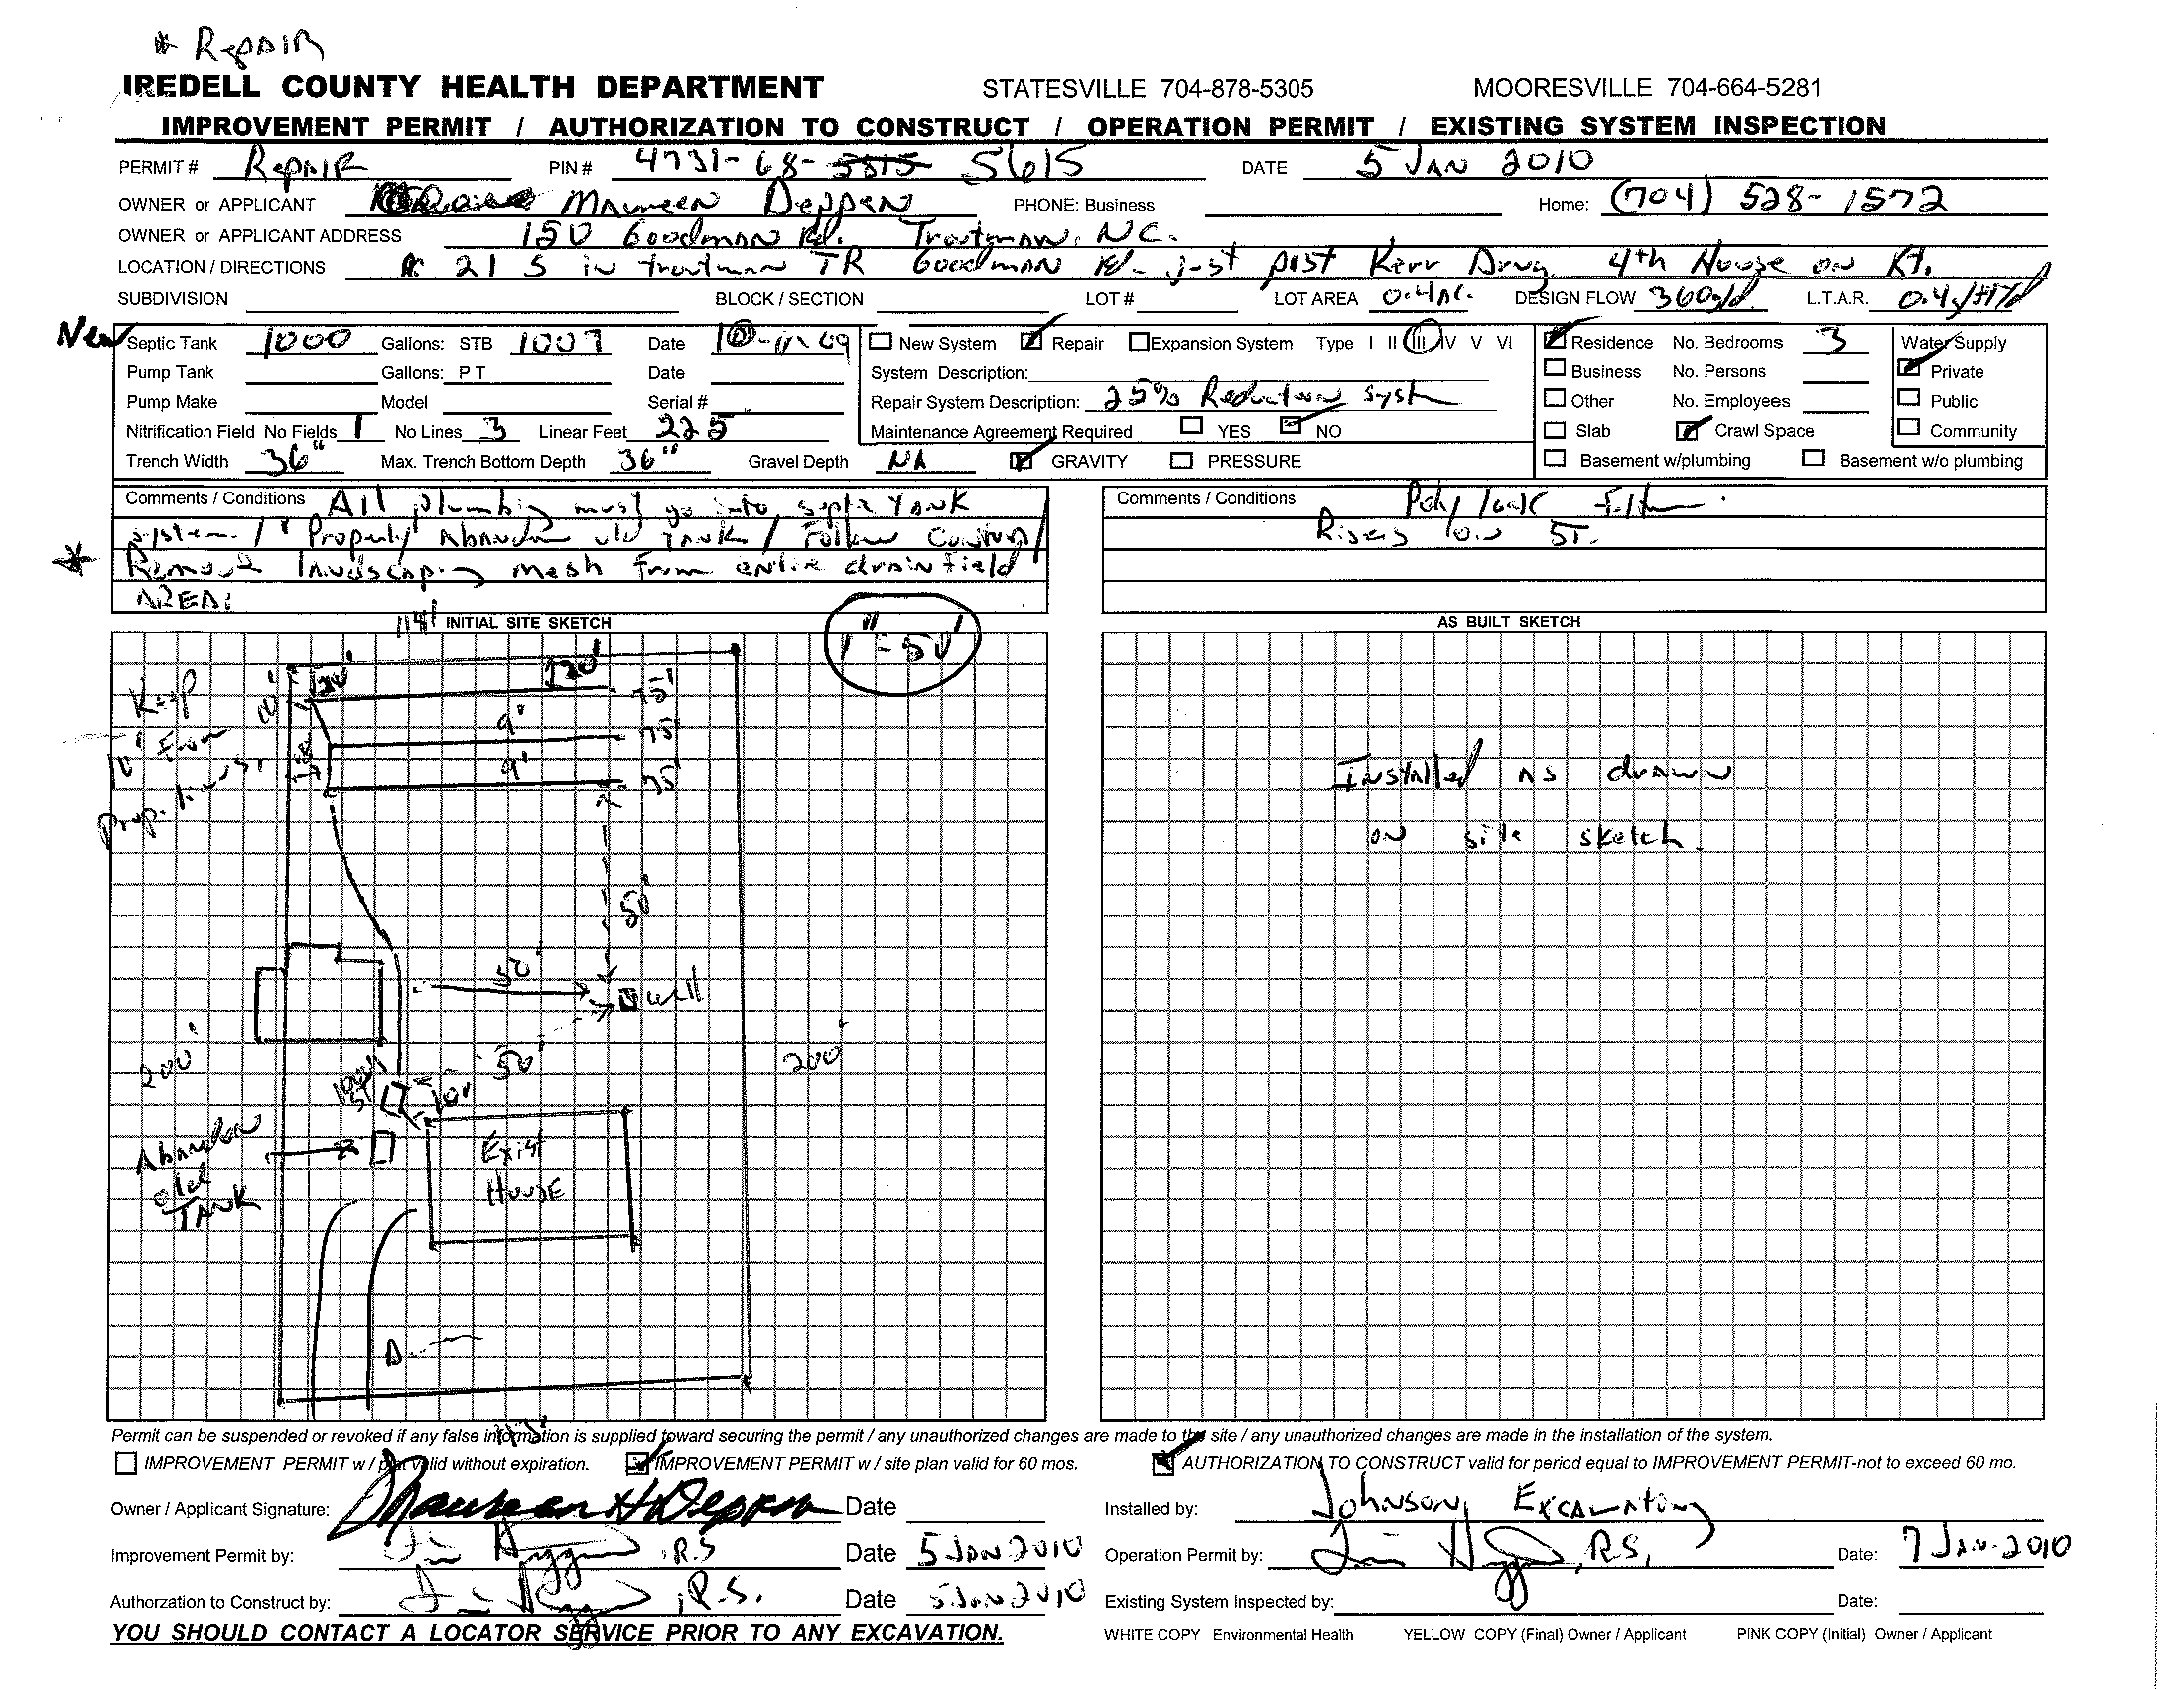 * Repair
IREDELL COUNTY HEALTH DEPARTMENT STATESVILLE 704-878-5305 MOORESVILLE 704-664-5281
IMPROVEMENT PERMIT / AUTHORIZATION TO CONSTRUCT / OPERATION PERMIT / EXISTING SYSTEM INSPECTION
PERMIT # Repair PIN # 4731-68-5815 5615 DATE 5 JAN 2010
OWNER or APPLICANT Maureen Deppen PHONE: Business Home: (704) 528-1572
OWNER or APPLICANT ADDRESS 150 Goodman Rd. Troutman, NC.
LOCATION / DIRECTIONS 21 S in troutman TR Goodman Rd - just past Kerr Drug 4th House on Rt.
SUBDIVISION BLOCK / SECTION LOT # LOT AREA 0.4 AC. DESIGN FLOW 360 g/d L.T.A.R. 0.4
New Septic Tank 1000 Gallons: STB 1007 Date ☐ New System ☑ Repair ☐ Expansion System Type I II III IV V VI ☑ Residence No. Bedrooms 3 Water Supply
Pump Tank Gallons: P T Date System Description: ☐ Business No. Persons ☑ Private
Pump Make Model Serial # Repair System Description: 25% Reduction Syst ☐ Other No. Employees ☐ Public
Nitrification Field No Fields 1 No Lines 3 Linear Feet 225 Maintenance Agreement Required ☐ YES ☑ NO ☐ Slab ☑ Crawl Space ☐ Community
Trench Width 36" Max. Trench Bottom Depth 36" Gravel Depth NA ☑ GRAVITY ☐ PRESSURE ☐ Basement w/plumbing ☐ Basement w/o plumbing
Comments / Conditions All plumbing must go into septic TANK
system. / Properly Abandon old TANK / Follow Contour /
* Remove landscaping mesh from entire drainfield
AREA!
Comments / Conditions Poly lock Filter
Risers on ST.
118' INITIAL SITE SKETCH
1" = 50'
Keep
10' From
prop. lines!
10'
20'
120'
75'
9'
75'
9'
75'
18'
50'
50'
well
50'
200'
200'
1000g
ST
10'
Abandon
old
TANK
Exist
HOUSE
D
AS BUILT SKETCH
Installed as drawn
on site sketch.
113'
Permit can be suspended or revoked if any false information is supplied toward securing the permit / any unauthorized changes are made to the site / any unauthorized changes are made in the installation of the system.
☐ IMPROVEMENT PERMIT w / plat valid without expiration. ☑ IMPROVEMENT PERMIT w / site plan valid for 60 mos. ☑ AUTHORIZATION TO CONSTRUCT valid for period equal to IMPROVEMENT PERMIT-not to exceed 60 mo.
Owner / Applicant Signature: Maureen H Deppen Date Installed by: Johnson Excavating
Improvement Permit by: , R.S Date 5 JAN 2010 Operation Permit by: , R.S. Date: 7 JAN. 2010
Authorzation to Construct by: , R.S. Date 5 JAN 2010 Existing System Inspected by: Date:
YOU SHOULD CONTACT A LOCATOR SERVICE PRIOR TO ANY EXCAVATION. WHITE COPY Environmental Health YELLOW COPY (Final) Owner / Applicant PINK COPY (Initial) Owner / Applicant